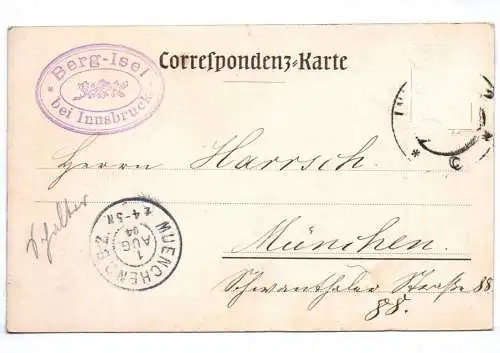 Berg-Isel
bei Innsbruck.
Correspondenz-Karte
Herrn Harrsch.
München.
Schwanthaler Straße 88
88.
MUENCHEN
1
AUG
04
4-5N